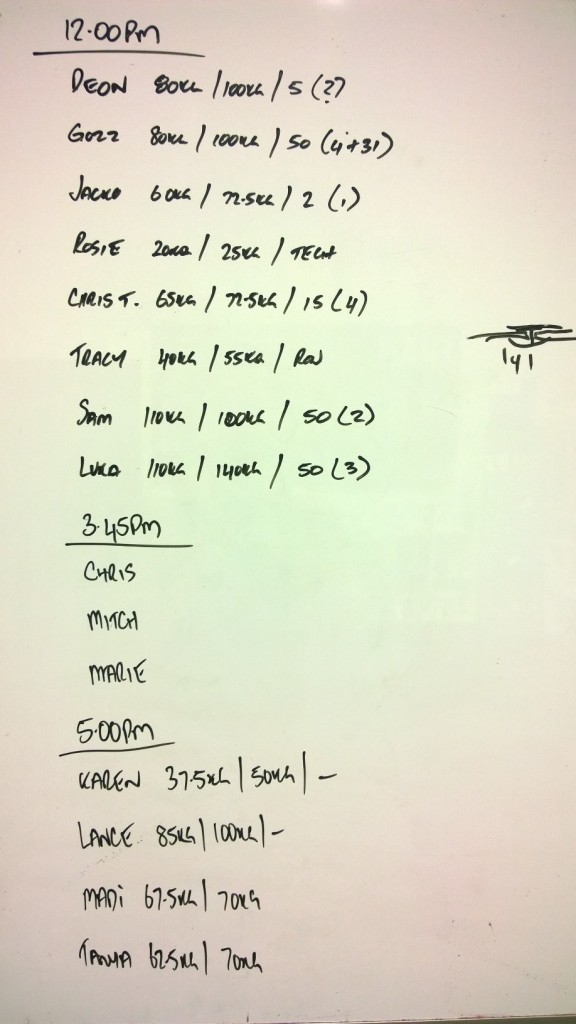 12.00pm
DEON 80KG / 100KG / 5 (2)
GOZZ 80KG / 100KG / 50 (4+31)
JACKO 60KG / 72.5KG / 2 (1)
ROSIE 20KG / 25KG / TECH
CHRIS T. 65KG / 72.5KG / 15 (4)
TRACY 40KG / 55KG / ROW
SAM 110KG / 100KG / 50 (2)
LUKA 110KG / 140KG / 50 (3)
3.45pm
CHRIS
MITCH
MARIE
5.00pm
KAREN 37.5KG | 50KG | -
LANCE 85KG | 100KG | -
MADi 67.5KG | 70KG
TANYA 62.5KG | 70KG